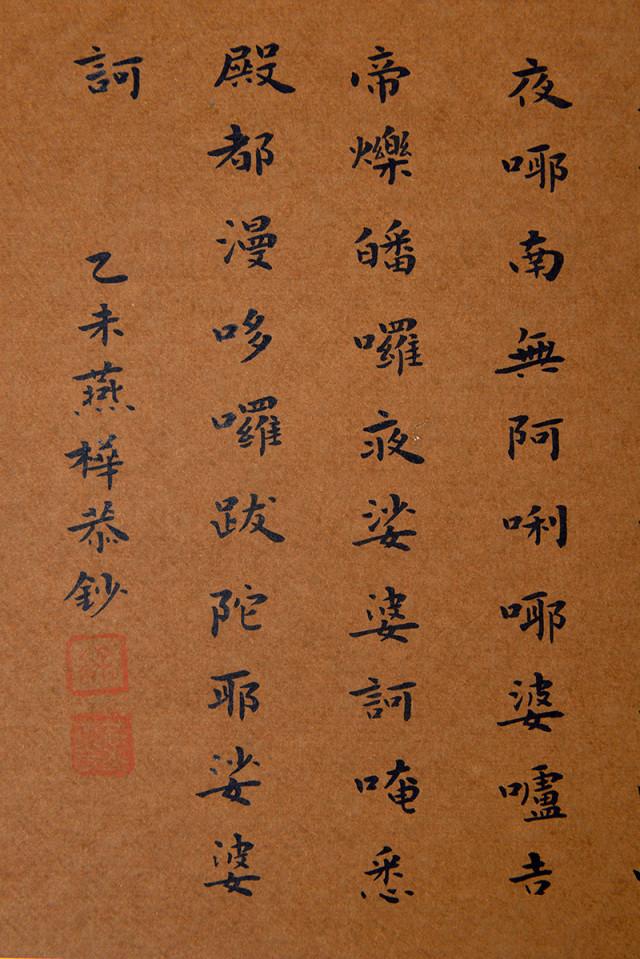 夜㖿南無阿唎㖿婆嚧吉
帝爍皤囉夜娑婆訶唵悉
殿都漫哆囉跋陀耶娑婆
訶
乙未燕樺恭鈔